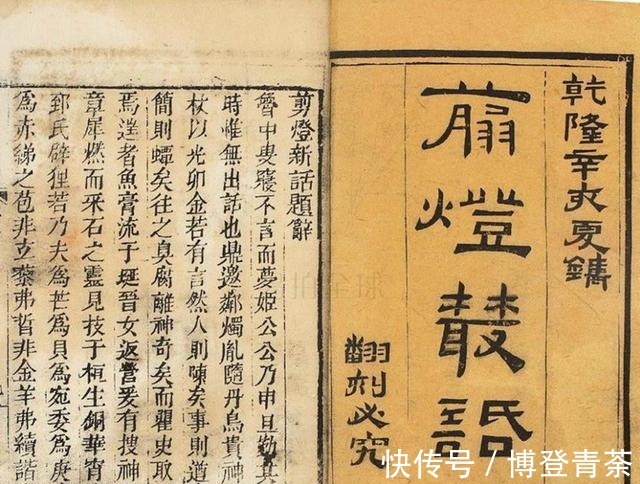 乾隆辛亥夏鐫
翦燈叢話
翻刻必究
剪燈新話題辭
魯中叟寢不言而夢姬公公乃申旦勤其
時惟無出話也鼎邀鄰燭胤隨丹鳥貴神
杖以光卯金若有言然人則陳矣事則道
簡則蟫矣往之臭腐離神奇矣而瞿史取
焉遑者魚膏流于珽晉女返營爰有搜神
章犀燃而采石之靈見技于桓生銅華宵
郅氏辟狸若乃夫為芒為貝為宛委為庚
為赤綈之苞非立藜弗晢非金羊弗續諧
快传号 / 博登青茶